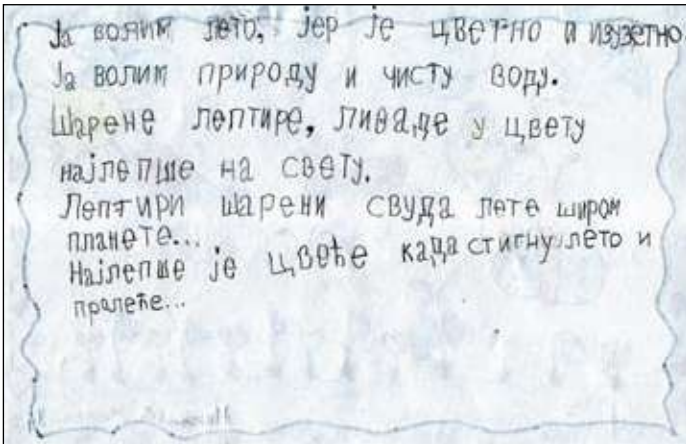 Ја волим лето, јер је цветно и изузетно
Ја волим природу и чисту воду.
Шарене лептире, ливаде у цвету
најлепше на свету.
Лептири шарени свуда лете широм
планете...
Најлепше је цвеће када стигну лето и
пролеће...